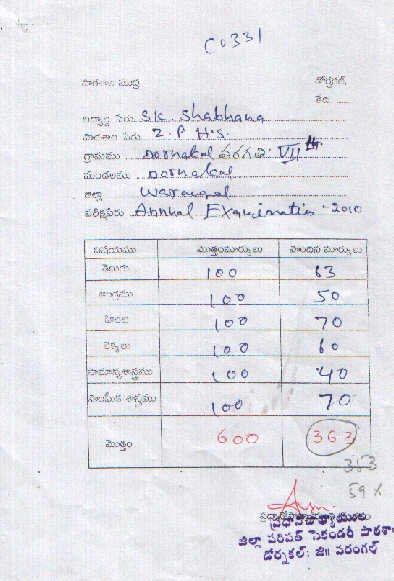 C0331
పాఠశాల ముద్ర డోర్నకల్,
తేది
విద్యార్థి పేరు S/c. Shabhana
పాఠశాల పేరు Z. P H.S.
గ్రామము Dornakal తరగతి: VII th
మండలము Dornakal
జిల్లా Warangal
పరీక్షపేరు Annual Examination - 2010
విషయము మొత్తంమార్కులు పొందిన మార్కులు
తెలుగు 100 63
ఆంగ్లము 100 50
హిందీ 100 70
లెక్కలు 100 60
సామాన్యశాస్త్రము 100 40
సాంఘిక శాస్త్రము 100 70
మొత్తం 600 363
353
59 %
ప్రధానోపాధ్యాయులు
జిల్లా పరిషత్ సెకండరీ పాఠశాల
డోర్నకల్: జి॥ వరంగల్